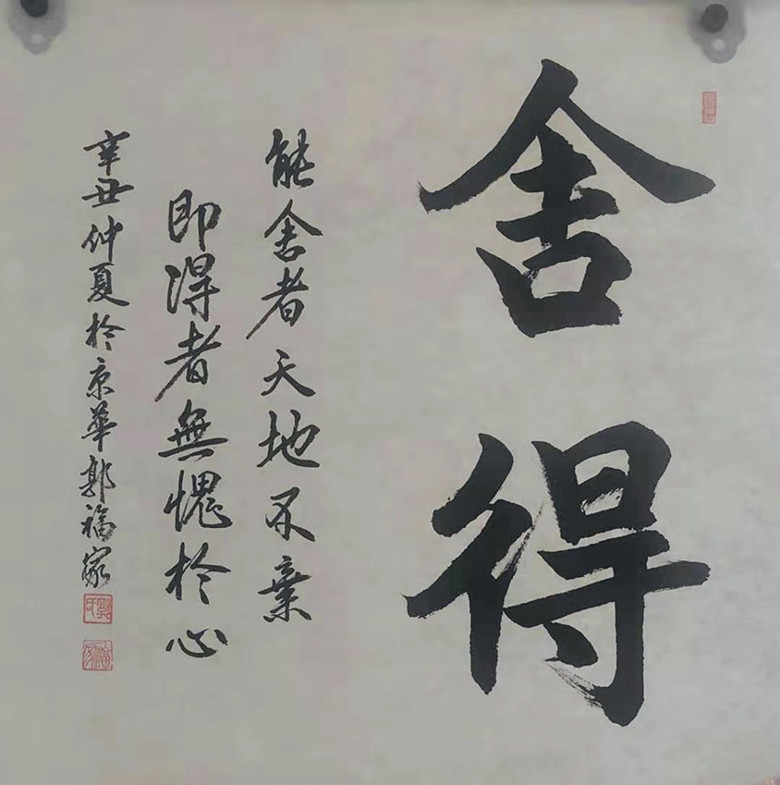 舍得
能舍者天地不棄
即得者無愧於心
辛丑仲夏於京華郭福家